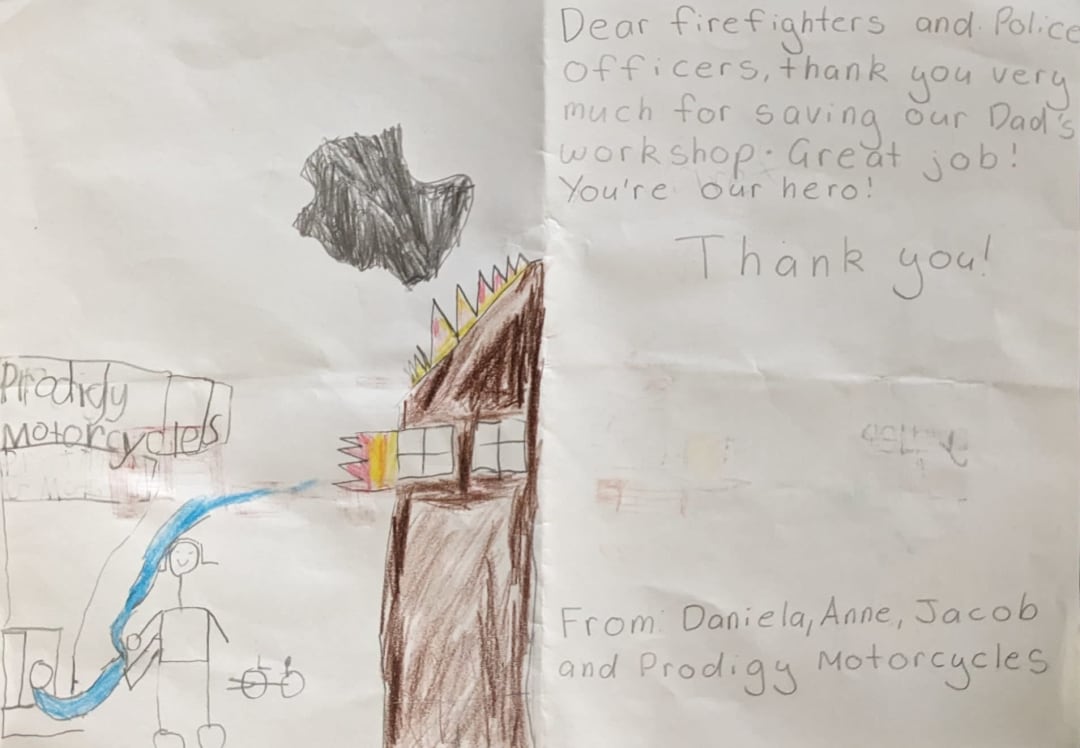 Prodigy
Motorcycles
Dear firefighters and Police
officers, thank you very
much for saving our Dad's
workshop. Great job!
You're our hero!
Thank you!
From: Daniela, Anne, Jacob
and Prodigy Motorcycles